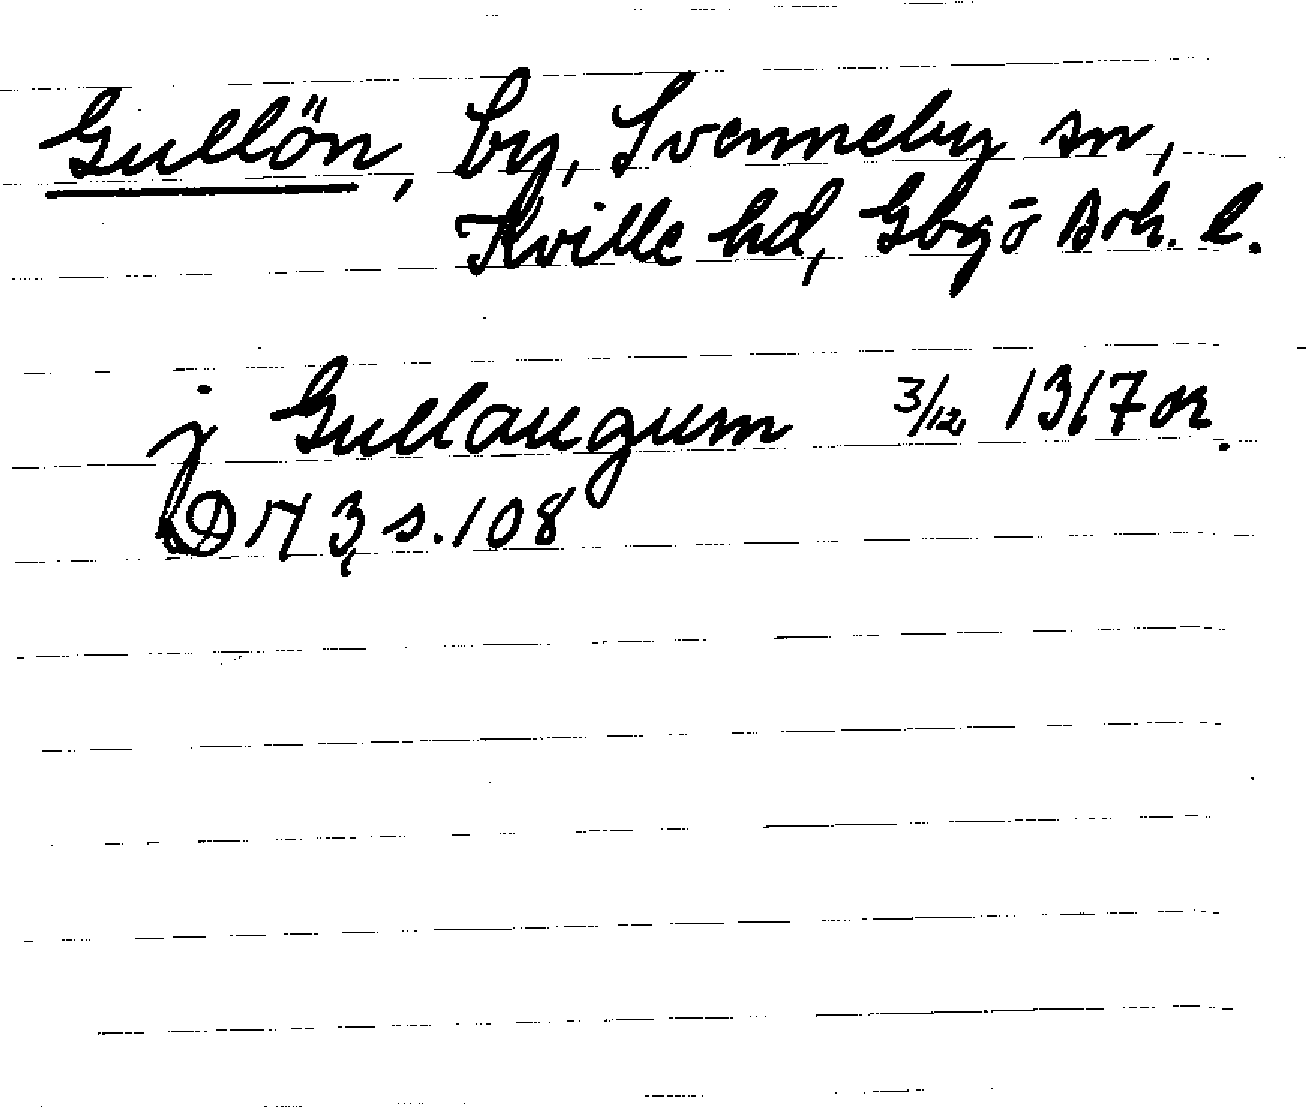 Gullön, by, Svenneby sn,
Kville hd, Gbg o Boh. l.
j Gullaugum 3/12 1317 or.
DN 3 s. 108